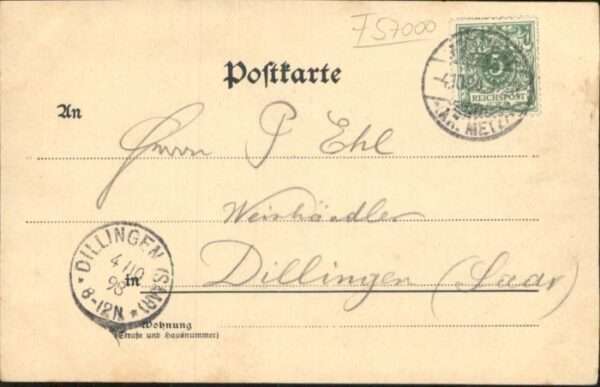 57000
Postkarte
5
REICHSPOST
4.10.
(KR. METZ)
An
Herrn P Ehl
Weinhändler
DILLINGEN (SAAR)
4/10
98
8-12N
in Dillingen (Saar)
Wohnung
(Straße und Hausnummer)